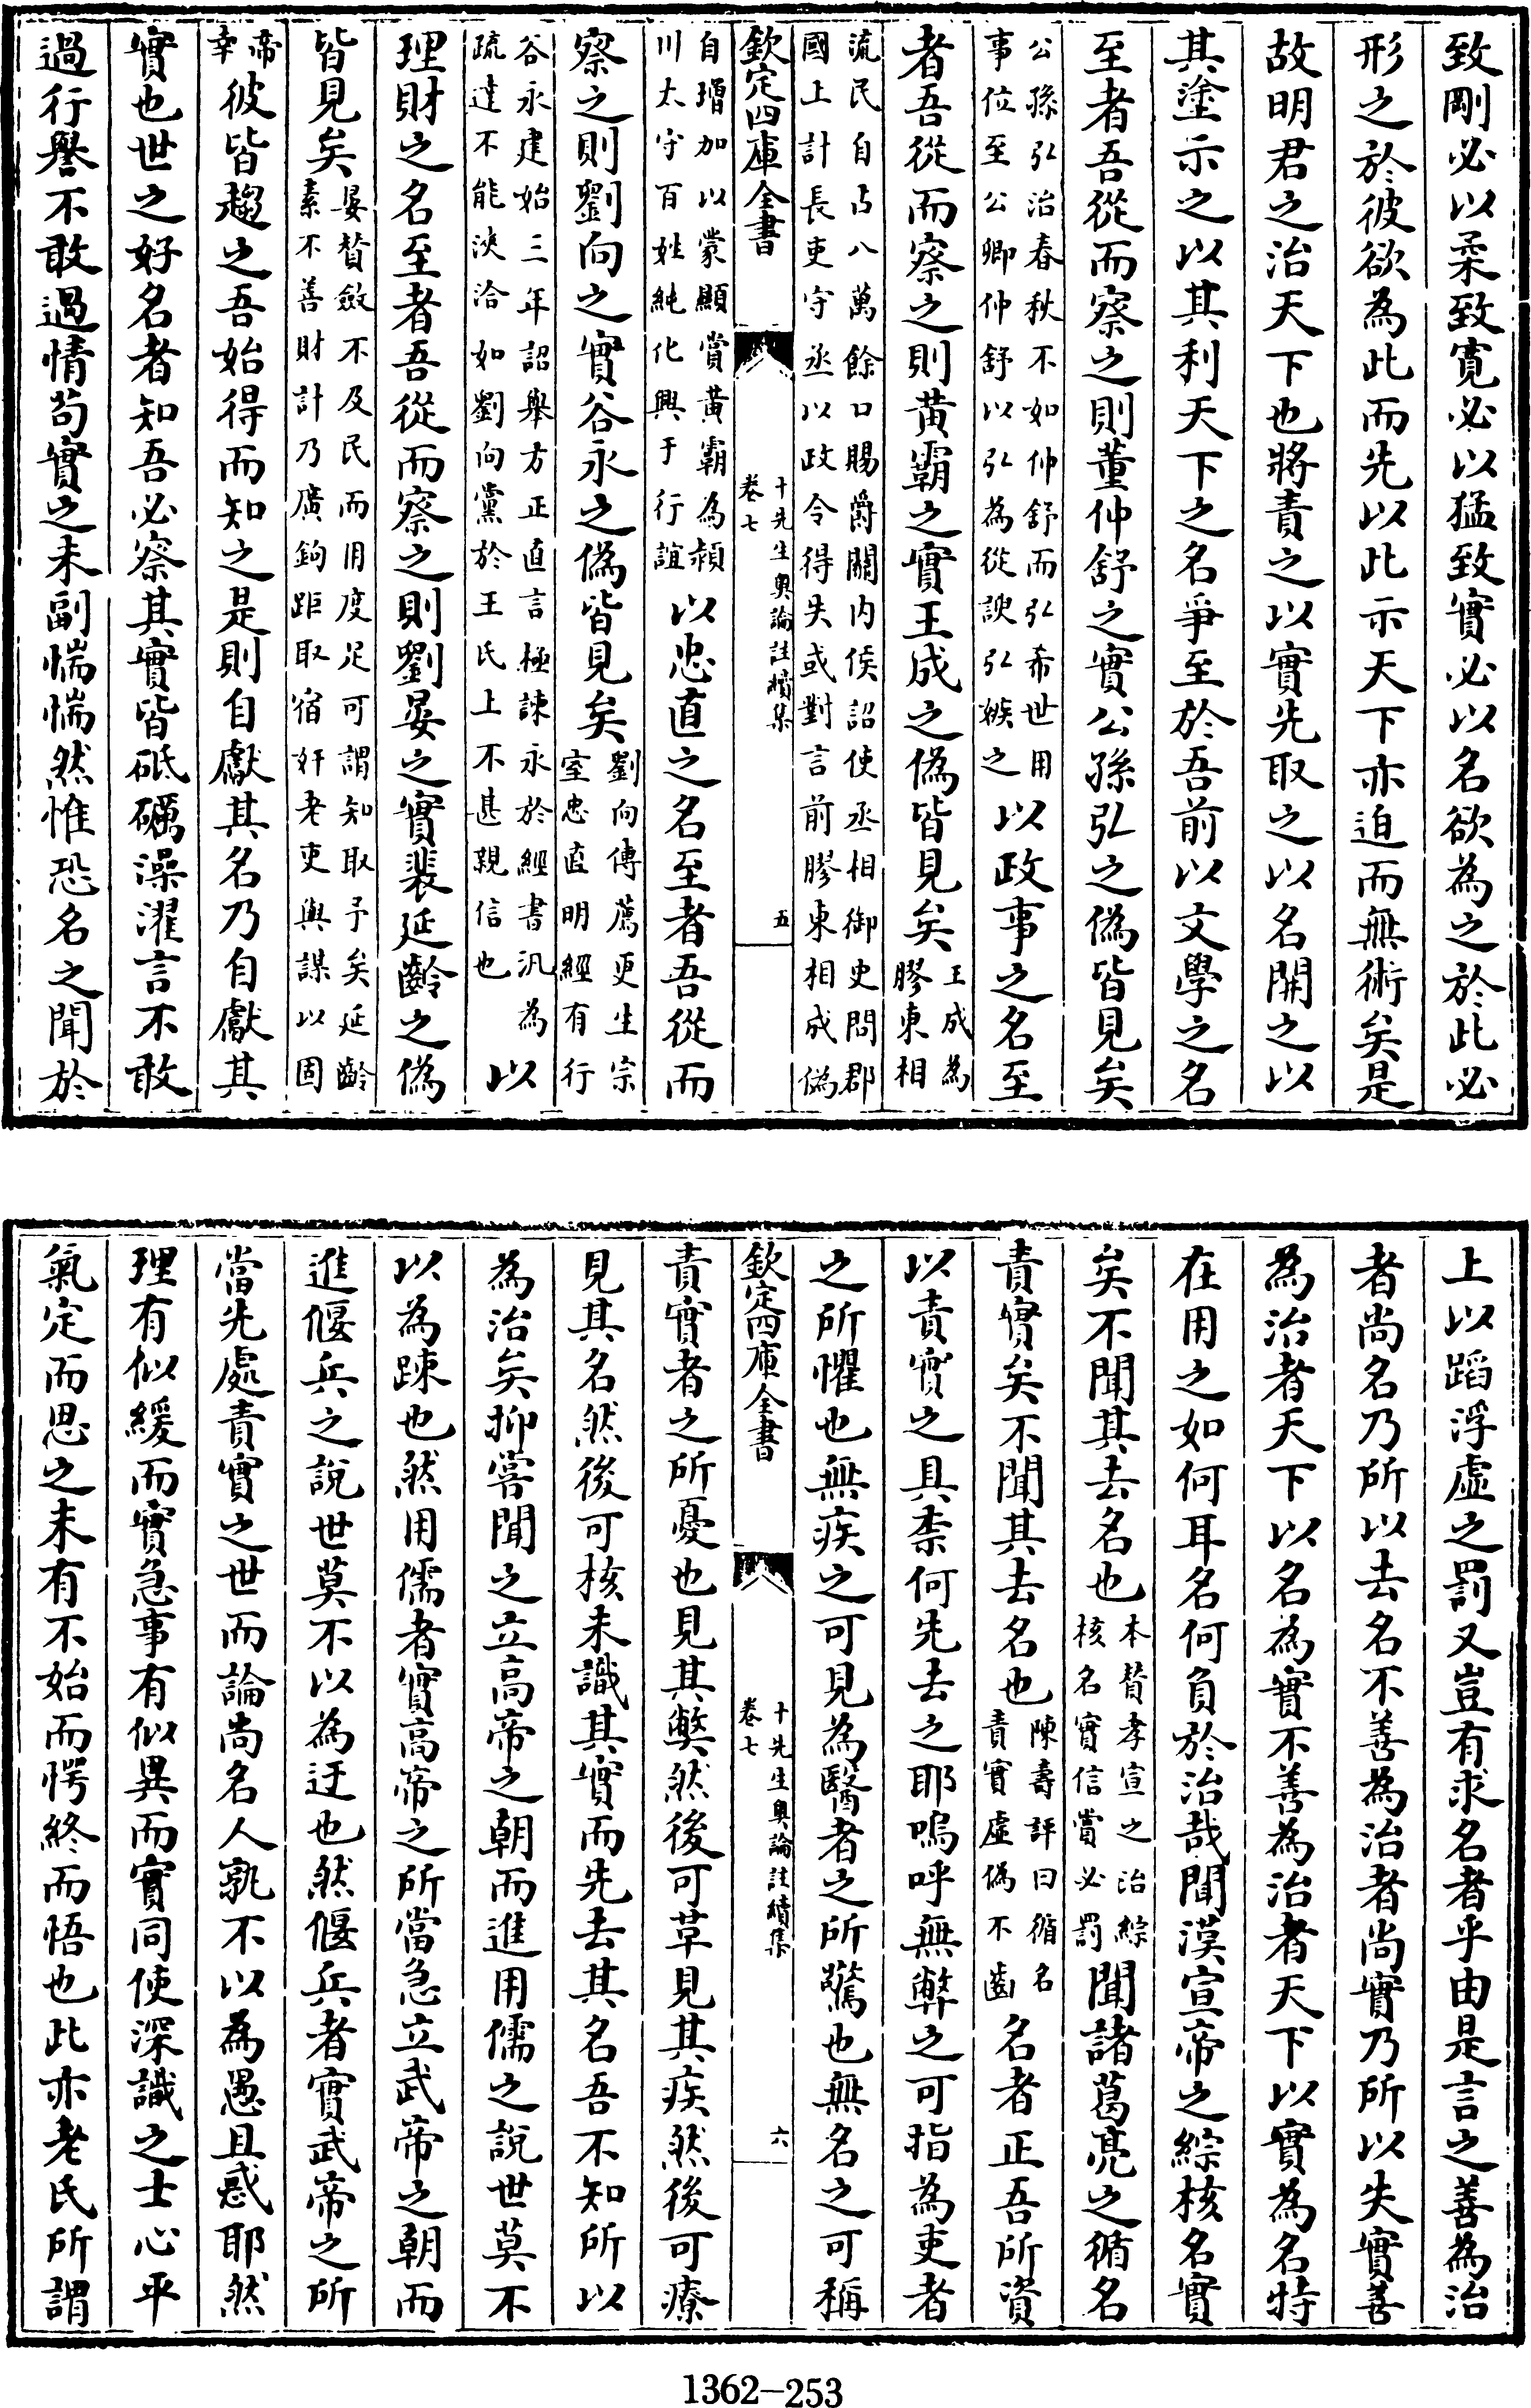 致剛必以柔致寛必以猛致實必以名欲為之於此必
形之於彼欲為此而先以此示天下亦迫而無術矣是
故明君之治天下也將責之以實先取之以名開之以
其塗示之以其利天下之名爭至於吾前以文學之名
至者吾從而察之則董仲舒之實公孫弘之偽皆見矣
公孫弘治春秋不如仲舒而弘希世用
事位至公卿仲舒以弘為從諛弘嫉之
以政事之名至
者吾從而察之則黄霸之實王成之偽皆見矣
王成為
膠東相
流民自占八萬餘口賜爵關内侯詔使丞相御史問郡
國上計長吏守丞以政令得失或對言前膠東相成偽
欽定四庫全書
十先生奥論註續集
卷七
五
自增加以蒙顯賞黄霸為潁
川太守百姓純化興于行誼
以忠直之名至者吾從而
察之則劉向之實谷永之偽皆見矣
劉向傳薦更生宗
室忠直明經有行
谷永建始三年詔舉方正直言極諫永於經書汎為
疏達不能浹洽如劉向黨於王氏上不甚親信也
以
理財之名至者吾從而察之則劉晏之實裴延齡之偽
皆見矣
晏賛斂不及民而用度足可謂知取予矣延齡
素不善財計乃廣鉤距取宿奸老吏與謀以固
帝
幸
彼皆趨之吾始得而知之是則自獻其名乃自獻其
實也世之好名者知吾必察其實皆砥礪澡濯言不敢
過行譽不敢過情苟實之未副惴惴然惟恐名之聞於
上以蹈浮虚之罰又豈有求名者乎由是言之善為治
者尚名乃所以去名不善為治者尚實乃所以失實善
為治者天下以名為實不善為治者天下以實為名特
在用之如何耳名何負於治哉聞漢宣帝之綜核名實
矣不聞其去名也
本賛孝宣之治綜
核名實信賞必罰
聞諸葛亮之循名
責實矣不聞其去名也
陳壽評曰循名
責實虚偽不齒
名者正吾所資
以責實之具柰何先去之耶嗚呼無弊之可指為吏者
之所懼也無疾之可見為醫者之所驚也無名之可稱
欽定四庫全書
十先生奥論註續集
卷七
六
責實者之所憂也見其弊然後可革見其疾然後可療
見其名然後可核未識其實而先去其名吾不知所以
為治矣抑嘗聞之立高帝之朝而進用儒之說世莫不
以為踈也然用儒者實高帝之所當急立武帝之朝而
進偃兵之說世莫不以為迂也然偃兵者實武帝之所
當先處責實之世而論尚名人孰不以為愚且惑耶然
理有似緩而實急事有似異而實同使深識之士心平
氣定而思之未有不始而愕終而悟也此亦老氏所謂
1362-253